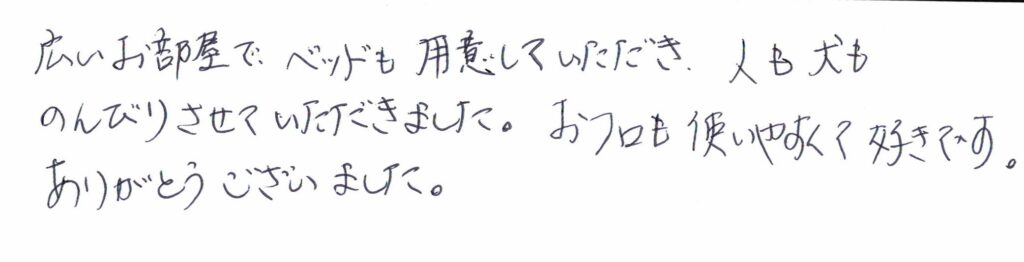 広いお部屋で、ベッドも用意していただき、人も犬も
のんびりさせていただきました。おフロも使いやすくて好きです。
ありがとうございました。